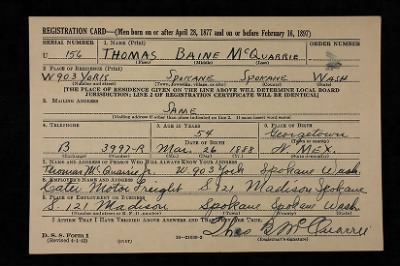 REGISTRATION CARD—(Men born on or after April 28, 1877 and on or before February 16, 1897)
SERIAL NUMBER 1. NAME (Print) ORDER NUMBER
U 156 THOMAS BAINE MCQUARRIE
(First) (Middle) (Last)
2. PLACE OF RESIDENCE (Print)
W903 YORK SPOKANE SPOKANE WASH
(Number and street) (Town, township, village, or city) (County) (State)
[THE PLACE OF RESIDENCE GIVEN ON THE LINE ABOVE WILL DETERMINE LOCAL BOARD
JURISDICTION; LINE 2 OF REGISTRATION CERTIFICATE WILL BE IDENTICAL]
3. MAILING ADDRESS
SAME
[Mailing address if other than place indicated on line 2. If same insert word same]
4. TELEPHONE 5. AGE IN YEARS 6. PLACE OF BIRTH
54 Georgetown
DATE OF BIRTH
B 3997-R Mar. 26 1888 N MEX.
7. NAME AND ADDRESS OF PERSON WHO WILL ALWAYS KNOW YOUR ADDRESS
Thomas McQuarrie Jr. W. 903 York Spokane Wash.
8. EMPLOYER'S NAME AND ADDRESS
Cater Motor Freight S-121 Madison Spokane
9. PLACE OF EMPLOYMENT OR BUSINESS
S-121 Madison Spokane Spokane Wash
(Number and street or R. F. D. number) (Town) (County) (State)
I AFFIRM THAT I HAVE VERIFIED ABOVE ANSWERS AND THAT THEY ARE TRUE.
D. S. S. Form 1
(Revised 4-1-42) (over) Thos B McQuarrie